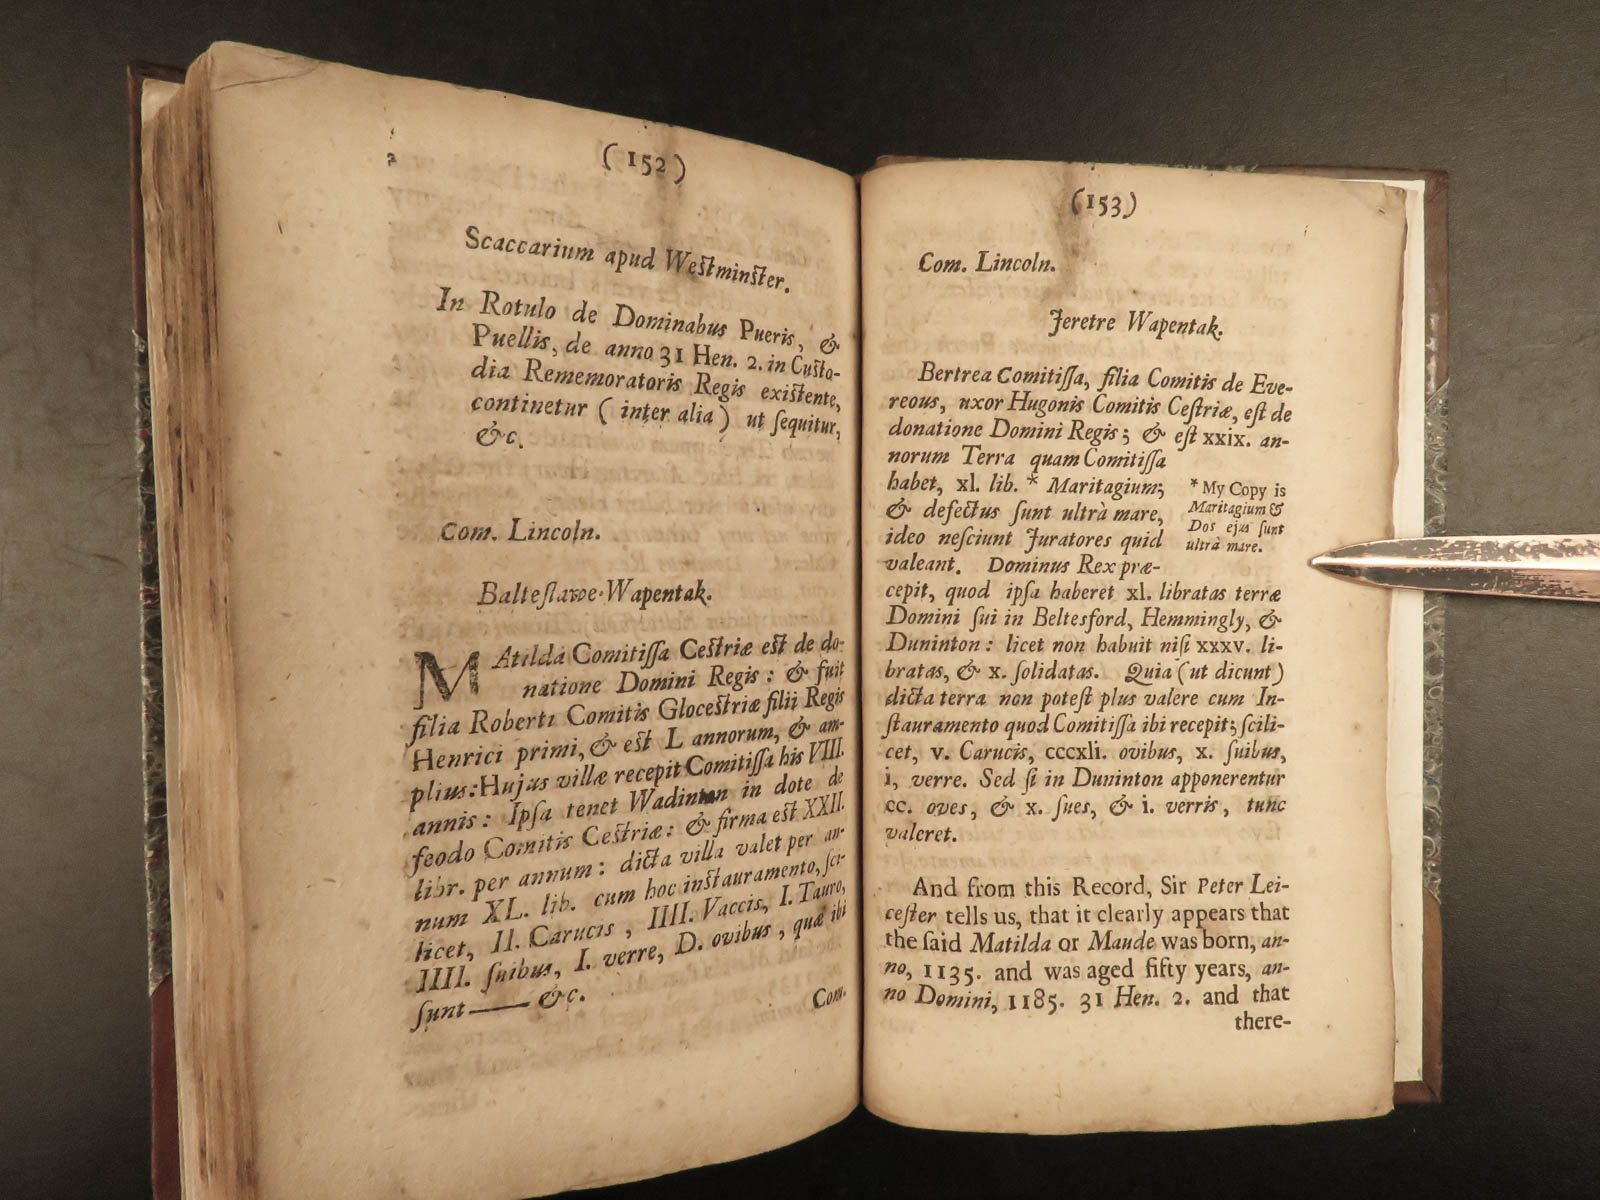 (152)
Scaccarium apud Westminster.
In Rotulo de Dominabus Pueris, &
Puellis, de anno 31 Hen. 2. in Custo-
dia Rememoratoris Regis existente,
continetur (inter alia) ut ſequitur,
&c.
Com. Lincoln.
Balteſlawe-Wapentak.
MAtilda Comitiſſa Cestriæ est de do-
natione Domini Regis: & fuit
filia Roberti Comitis Glocestriæ filii Regis
Henrici primi, & est L annorum, & am-
plius: Hujus villæ recepit Comitiſſa his VIII.
annis: Ipſa tenet Wadinton in dote de
feodo Comitis Cestriæ: & firma est XXII.
libr. per annum: dicta villa valet per an-
num XL. lib. cum hoc instauramento, ſci-
licet, II. Carucis, IIII. Vaccis, I. Tauro,
IIII. ſuibus, I. verre, D. ovibus, quæ ibi
ſunt —— &c.
Com.
(153)
Com. Lincoln.
Jeretre Wapentak.
Bertrea Comitiſſa, filia Comitis de Eve-
reous, uxor Hugonis Comitis Ceſtriæ, eſt de
donatione Domini Regis; & eſt xxix. an-
norum Terra quam Comitiſſa
habet, xl. lib. * Maritagium;
& defectus ſunt ultrà mare,
ideo neſciunt Juratores quid
valeant. Dominus Rex præ-
* My Copy is
Maritagium &
Dos ejus ſunt
ultrà mare.
cepit, quod ipſa haberet xl. libratas terræ
Domini ſui in Beltesford, Hemmingly, &
Duninton: licet non habuit niſi xxxv. li-
bratas, & x. ſolidatas. Quia (ut dicunt)
dicta terra non poteſt plus valere cum In-
ſtauramento quod Comitiſſa ibi recepit; ſcili-
cet, v. Carucis, cccxli. ovibus, x. ſuibus,
i, verre. Sed ſi in Duninton apponerentur
cc. oves, & x. ſues, & i. verris, tunc
valeret.
And from this Record, Sir Peter Lei-
ceſter tells us, that it clearly appears that
the ſaid Matilda or Maude was born, an-
no, 1135. and was aged fifty years, an-
no Domini, 1185. 31 Hen. 2. and that
there-